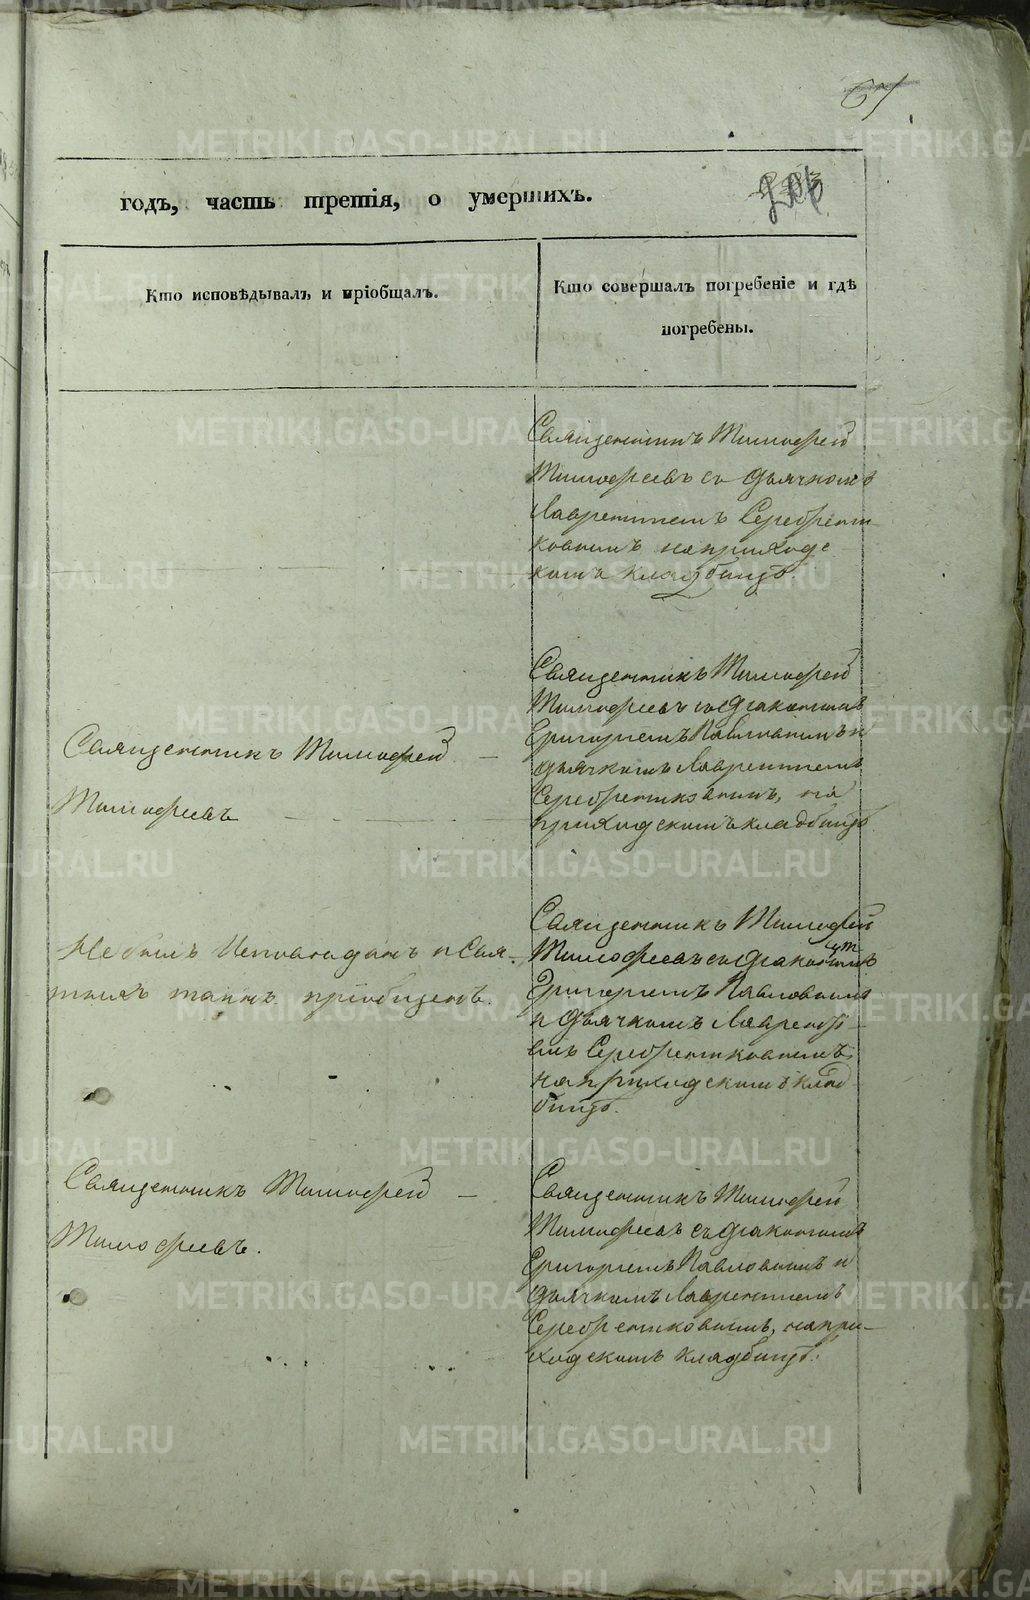 67
годъ, часть третія, о умершихъ.
Кто исповѣдывалъ и пріобщалъ.
Кто совершалъ погребеніе и гдѣ
погребены.
Священникъ Тимофей
Тимофеевъ съ дьячкомъ
Лаврентіемъ Серебрен-
никовымъ на приходс
комъ кладбищѣ.
Священникъ Тимофей —
Тимофеевъ
Священникъ Тимофей
Тимофеевъ съ діакономъ
Григоріемъ Павловымъ и
дьячкомъ Лаврентіемъ
Серебрениковымъ, на
приходскомъ кладбищѣ
Не былъ Исповѣданъ и Свя-
тыхъ таинъ пріобщенъ.
Священникъ Тимофей
Тимофеевъ съ діакономъ
Григоріемъ Павловымъ
и дьячкомъ Лаврентi
емъ Серебрениковымъ
на приходскомъ клад
бищѣ.
Священникъ Тимофей —
Тимофеевъ.
Священникъ Тимофей
Тимофеевъ съ діакономъ
Григоріемъ Павловымъ и
дьячкомъ Лаврентіемъ
Серебрениковымъ, на при-
ходскомъ кладбищѣ.
METRIKI.GASO-URAL.RU